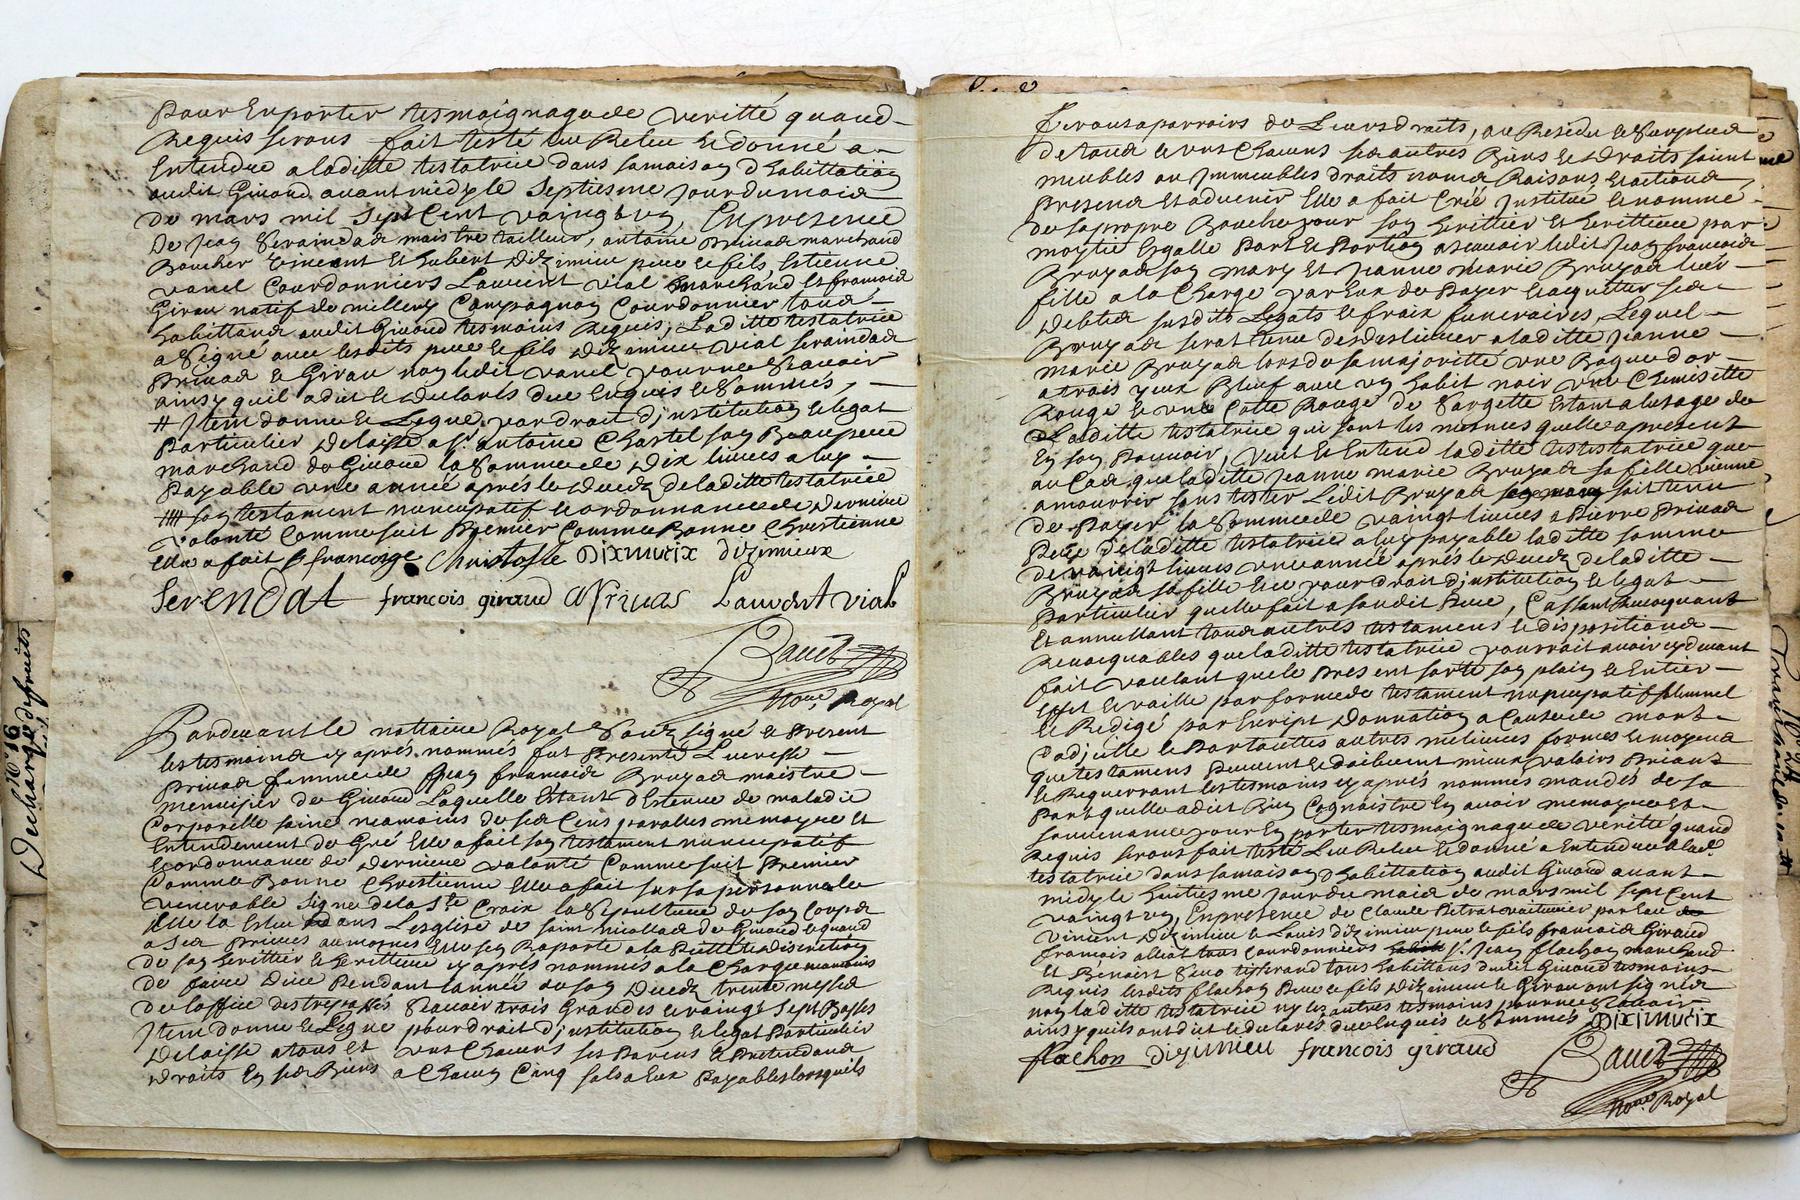 Pour En porter tesmoignage de veritté quand
Requis serons fait testé leu Releu & donné a
Entendre a laditte testatrice dans sa maison d'habittation
audit Givord avant midy le septiesme jour du mois
de mars mil sept Cent vaingt En presence
De Jean maistre tailleur, antoine Privas marchand
Boucher vincent et hubert dizimieu pere & fils Estienne
vanel Courdonniers Laurent vial marchand et francois
Girau natif de millery Compagnon Courdonnier tous
habittans audit Givord tesmoins Requis, Laditte testatrice
a signé avec lesdits pere & fils dizimieu vial
Privas & Girau non ledit vanel pour ne scavoir
ainsy quil a dit & declaré de ce Enquis & sommés,
# Item donne & Legue par droit d'institution & legat
Particulier delaisse a Sr. antoine Chastel son Beaupere
marchand de Givord la somme de dix livres a luy
Payable une année après le decedz de laditte testatrice
son testament nuncupatif & ordonnance de derniere
volonté Comme suit Premier Comme Bonne Chrestienne
Elle a fait francoise Christofle DiximiEix dizimieux
Serendat francois giraud aprivas Laurent vial
Bauct
Nore. Royal
Pardevant le nottaire Royal souz signé & Present
les tesmoins cy après nommés fut Presente Lucresse
Privas femme de Jean francois Bruyas maistre
menuisier de Givord Laquelle Estant detenue de maladie
Corporelle saine neamoins de ses Cens parolles memoyre et
Entendement de Gré Elle a fait son testament nuncupatif
& ordonnance de derniere volonté Comme suit Premier
Comme Bonne Chrestienne Elle a fait sur sa personne le
venerable signe de la Ste Croix la sepulture de son Corps
Elle la Esleu dans Lesglise de saint nicollas de Givord & quand
a ses prieres aumosnes Elle sen Raporte a la & discretion
de son herittier & herittiere cy après nommés a la Charge
de faire dire Pendant lannée de son decedz trente messes
de loffice des trespassés scavoir trois Grandes & vaingt sept Basses
Item donne & Legue pour droit d'institution & legat Particulier
delaisse a tous et uns Chacuns ses Parens & Pretendans
droits En ses Biens a Chacun Cinq sols a Eux Payables lorsquils
feront aparroirs de Leurs droits, au Residu & surplus
de tous & uns Chacuns ses autres Biens & droits soient
meubles ou Immeubles droits noms Raisons & actions
Presens et advenir Elle a fait Créé Institué & nommé
de sa propre Bouche pour son herittier et herittiere par
moytié Esgalle Part & Portion ascavoir ledit Jean francois
Bruyas son mary et Jeanne marie Bruyas leur
fille a la Charge par Eux de Payer & acquitter ses
debtes susdits Legats & fraix funeraires, Lequel
Bruyas serat tenu de a laditte Jeanne
marie Bruyas lors de sa majoritté une Bague d'or
a trois yeux Bleuf avec un habit noir une Chemisette
Rouge & une Cotte Rouge de sargette Estant a lusage de
Laditte testatrice qui sont les mesmes quelle a present
En son Pouvoir, veut & Entend laditte testatrice que
au Cas que laditte Jeanne marie Bruyas sa fille vienne
a mourrir sans tester Ledit Bruyas son mary soit tenu
de Payer la somme de vaingt livres a Pierre Privas
Pere de laditte testatrice a luy payable laditte somme
de vaingt livres une année après le decedz de laditte
Bruyas sa fille & ce pour droit d'institution & legat
Particulier quelle fait a sondit Pere, Cassant Revocquant
Et annullant tous autres testamens & dispositions
Revocquables que laditte testatrice pourrait avoir cydevant
fait voullant que le Present sorte son plain & Entier
Effet & vaille par forme de testament nuncupatif solemnel
& Redigé par Escript donnation a Cause de mort
Codicille & Par touttes autres meliures formes & moyens
que testamens Peuvent & doibvent mieux valoirs Priant
& Requerrant les tesmoins cy après nommés mandés de sa
Part quelle a dit Bien Cognoistre En avoir memoyre Et
souvenance pour En porter tesmoignage de verité quand
Requis serons fait testé Leu Releu & donné a Entendre a lade.
testatrice dans sa maison d'habittation audit Givord avant
midy le huitiesme Jour du mois de mars mil sept Cent
vaingt En presence de Claude Pitrat voiturier par Eau
vincent dizimieu & Louis dizimieu pere & fils francois Giraud
francois alliat tous Courdonniers Sr. Jean flachon marchand
Et Benoist tisserand tous habittans dudit Givord tesmoins
Requis lesdits flachon Pere & fils dizimieu & Girau ont signés
non laditte testatrice ny les autres tesmoins pour ne scavoir
ainsy quils ont dit & declarés de ce Enquis & sommés DiximiEix
flachon dizimieu francois giraud
Bauct
Nore. Royal